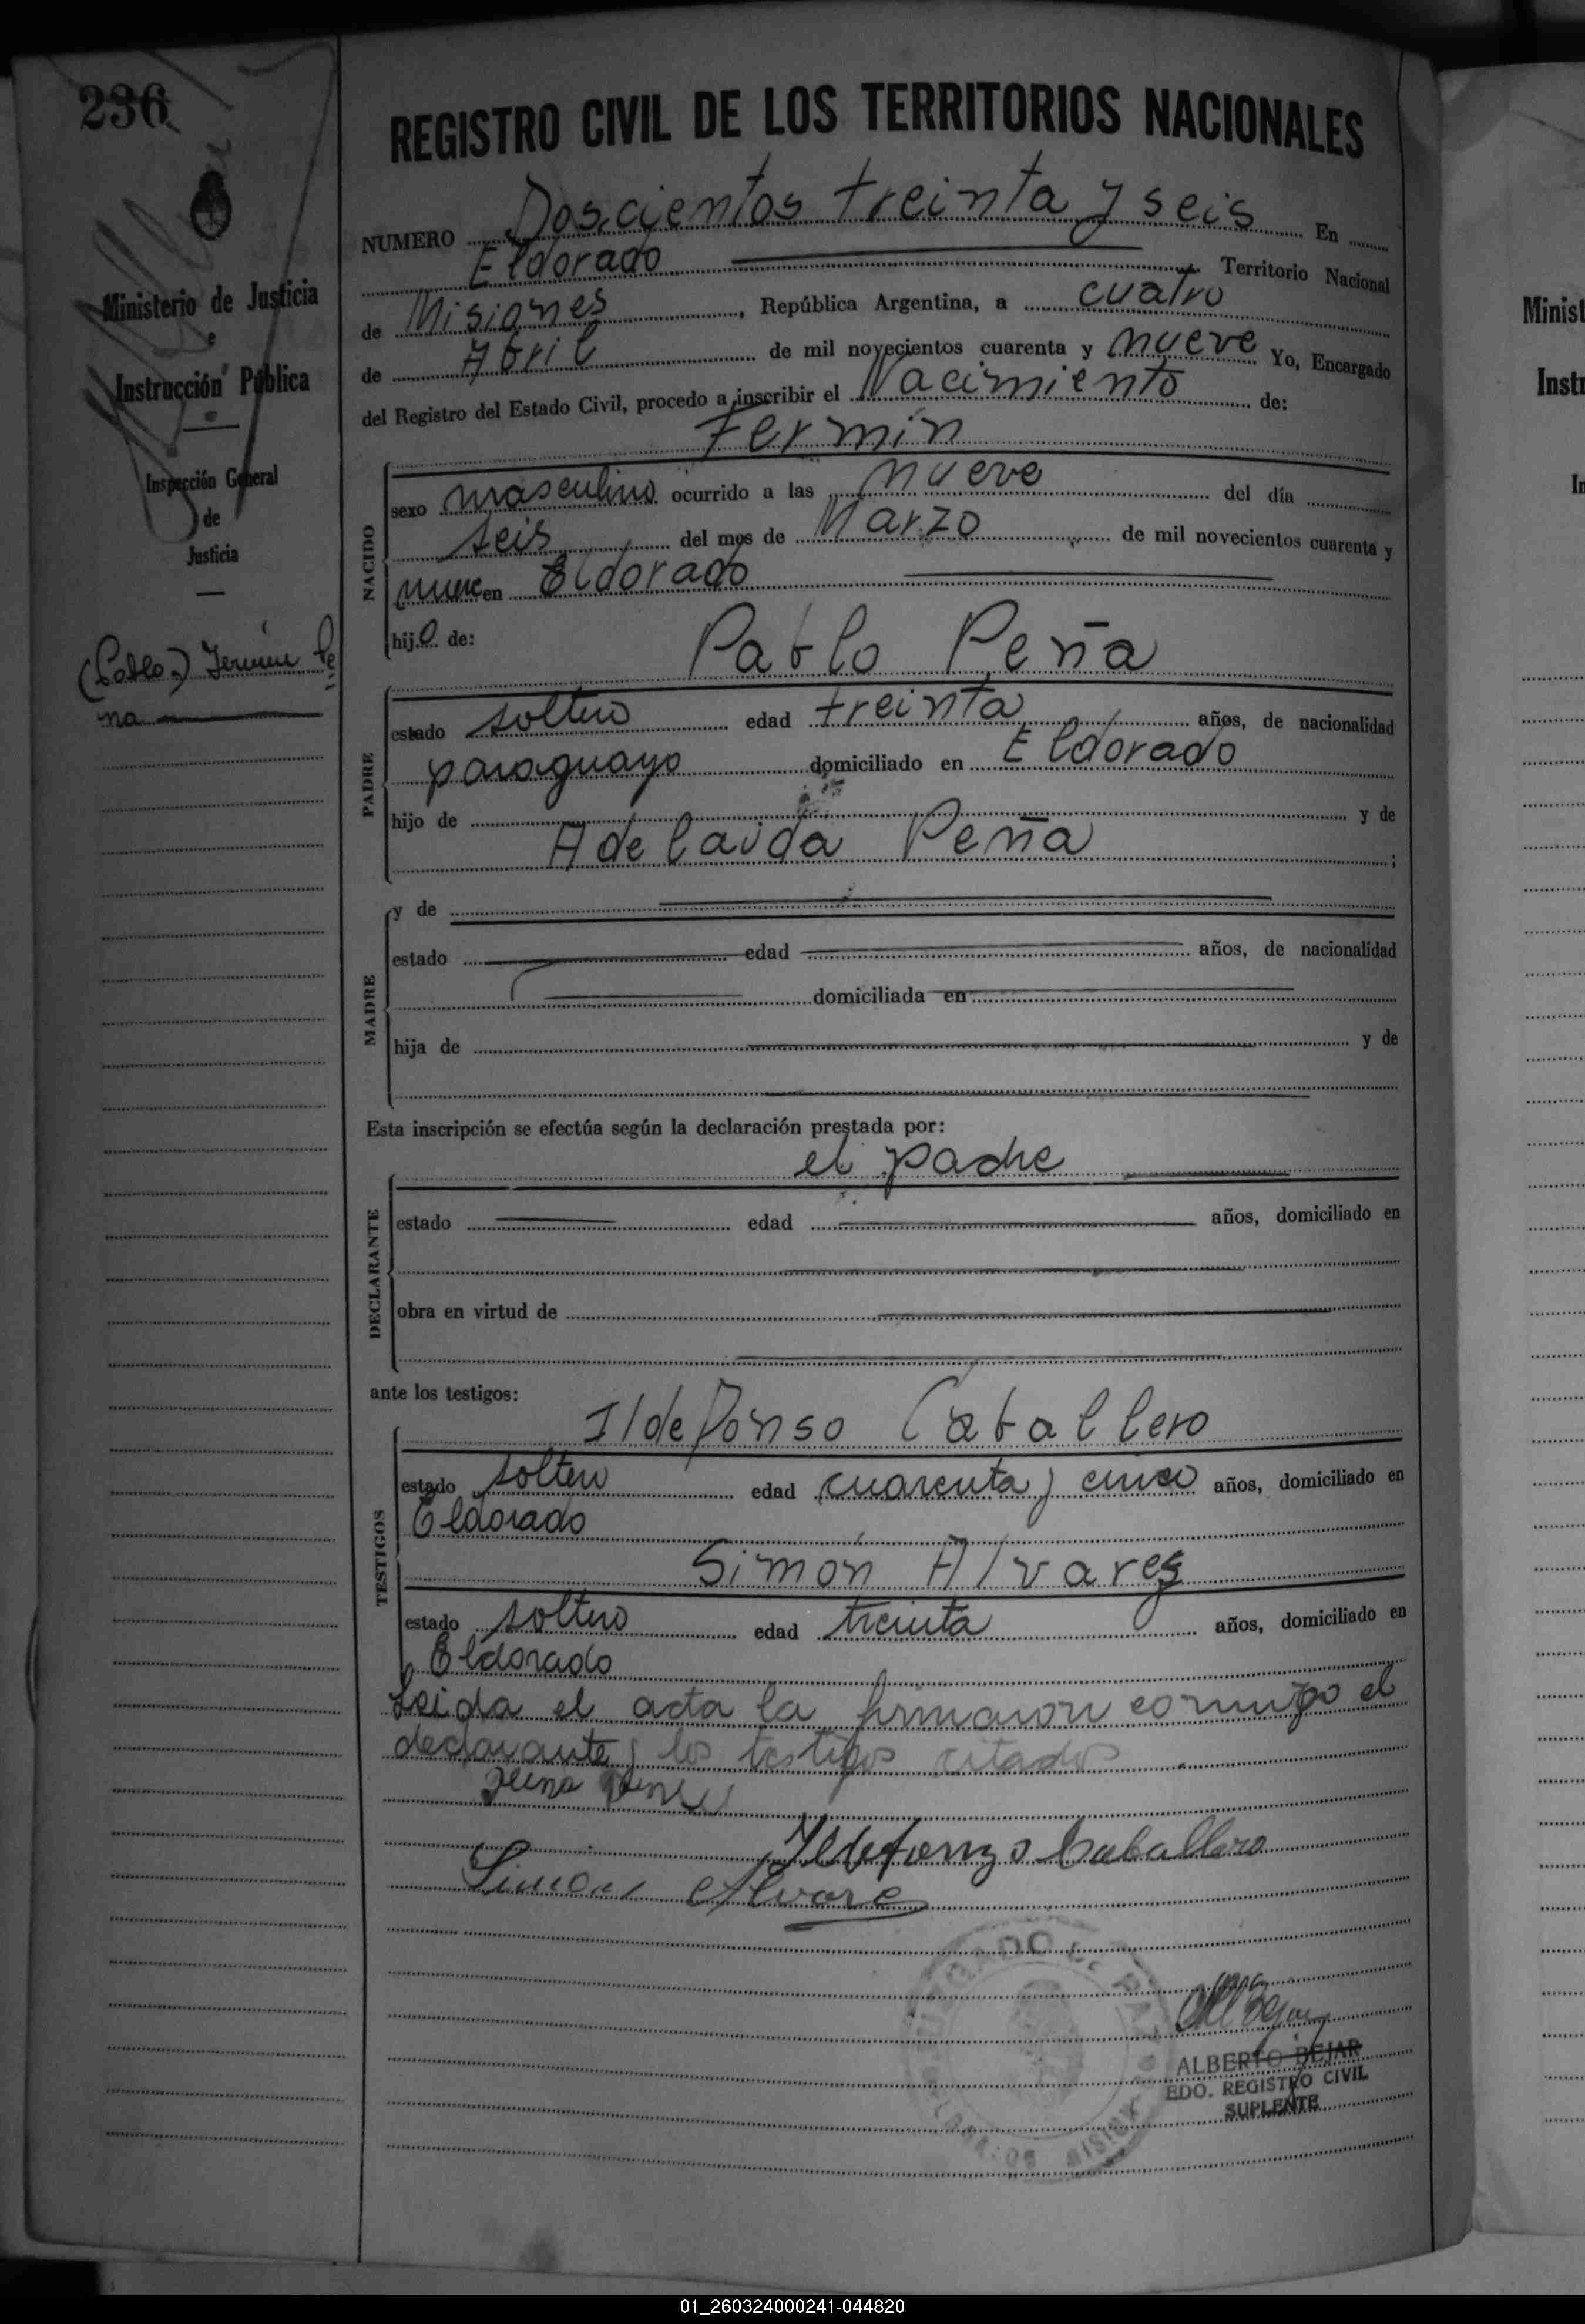 236
Ministerio de Justicia
e
Instrucción Pública
Inspección General
de
Justicia
(Pablo) Fermin Pe
ña
REGISTRO CIVIL DE LOS TERRITORIOS NACIONALES
NUMERO Doscientos treinta y seis En
Eldorado Territorio Nacional
de Misiones, República Argentina, a cuatro
de Abril de mil novecientos cuarenta y nueve Yo, Encargado
del Registro del Estado Civil, procedo a inscribir el Nacimiento de:
Fermin
NACIDO
sexo masculino ocurrido a las nueve del día
seis del mes de Marzo de mil novecientos cuarenta y
nueve en Eldorado
hijo de: Pablo Peña
PADRE
estado soltero edad treinta años, de nacionalidad
paraguayo domiciliado en Eldorado
hijo de y de
Adelaida Peña ;
MADRE
y de
estado edad años, de nacionalidad
domiciliada en
hija de y de
Esta inscripción se efectúa según la declaración prestada por:
el padre
DECLARANTE
estado edad años, domiciliado en
obra en virtud de
ante los testigos:
Ildefonso Caballero
TESTIGOS
estado soltero edad cuarenta y cinco años, domiciliado en
Eldorado
Simón Alvares
estado soltero edad treinta años, domiciliado en
Eldorado
Leida el acta la firmaron conmigo el
declarante y los testigos citados
Ildefonzo Caballero
Simon Alvare
ALBERTO BEJAR
EDO. REGISTRO CIVIL
SUPLENTE
Minist
Instr
In
01_260324000241-044820